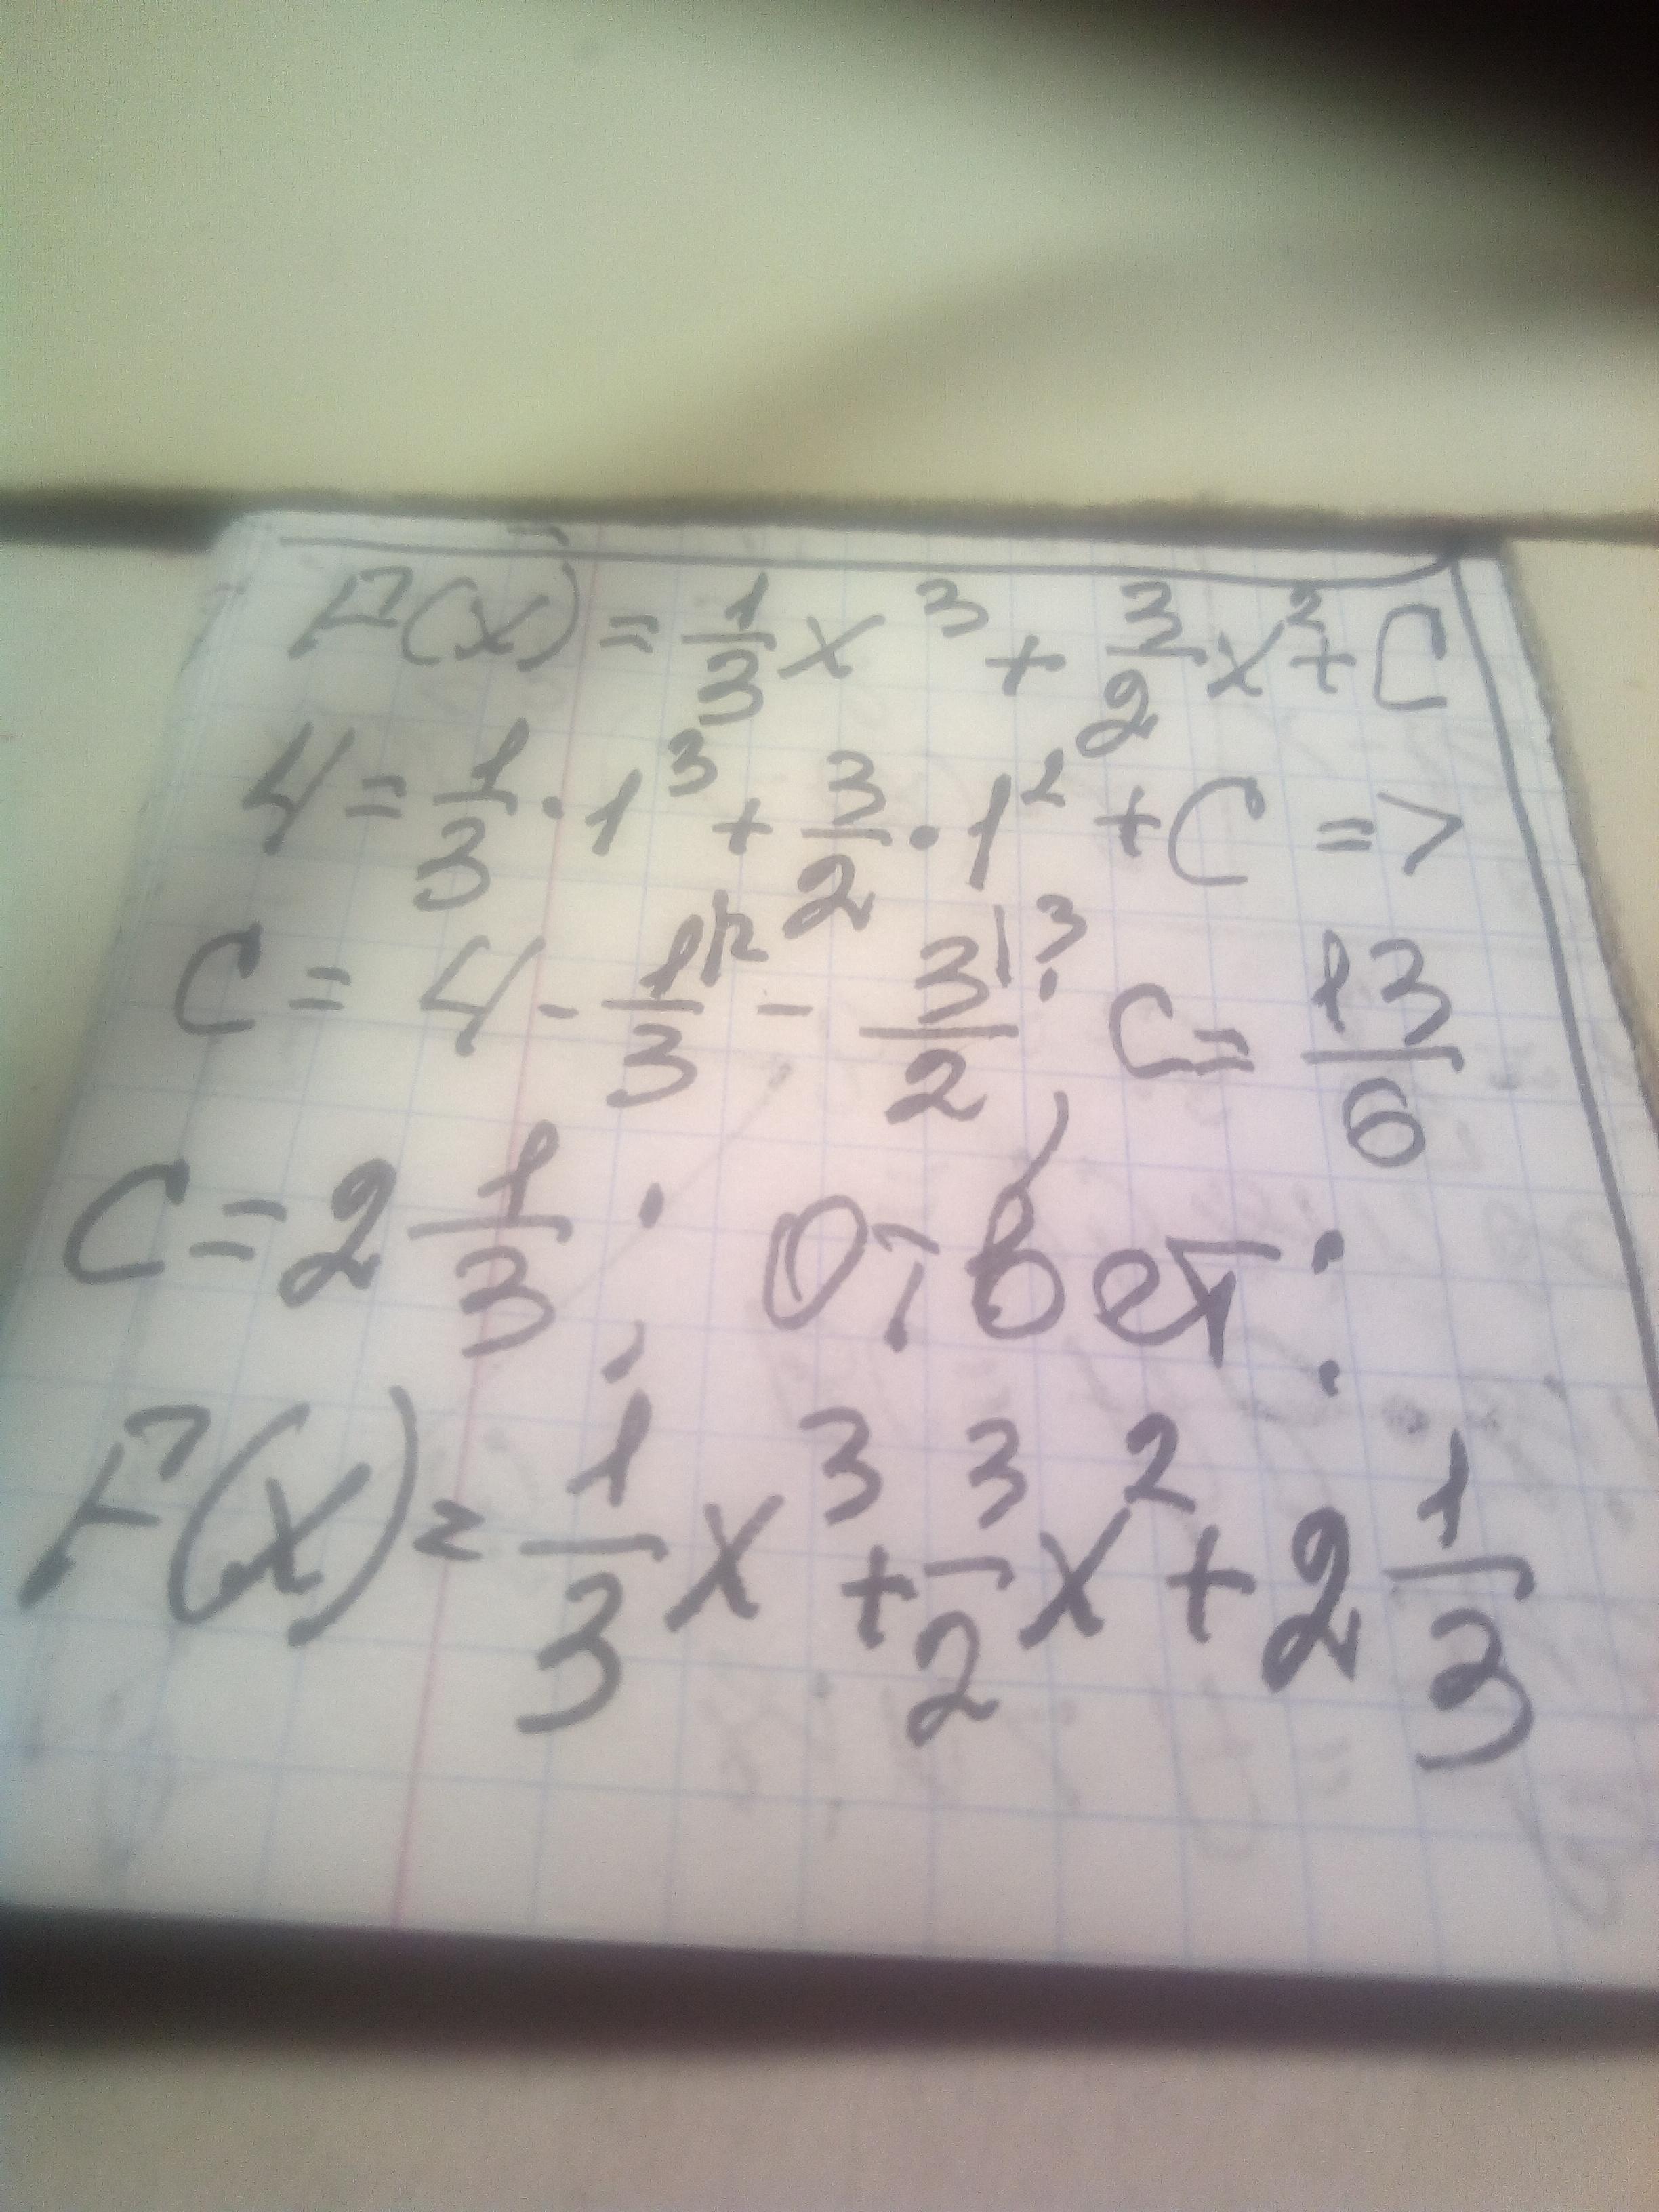 F(x) = 1/3 x³ + 3/2 x² + C
4 = 1/3 · 1³ + 3/2 · 1² + C =>
C = 4 - 1|2/3 - 3|3/2; C = 13/6
C = 2 1/3; Ответ:
F(x) = 1/3 x³ + 3/2 x² + 2 1/3